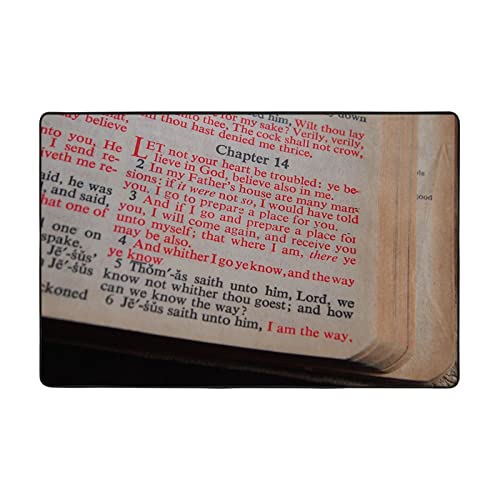 ay believe
nto you, He
I send re-
iveth me re-
aid, he was
and said,
hat one of
one on
spake.
Jē′-s̝ŭs′
Jē′-s̝ŭs
ckoned
down
him, Wilt thou lay
for my sake? Verily, verily,
unto thee, The cock shall not crow,
thou hast denied me thrice.
Chapter 14
LET not your heart be troubled: ye be-
lieve in God, believe also in me.
2 In my Father's house are many man-
sions: if it were not so, I would have told
you. I go to prepare a place for you.
3 And if I go and prepare a place for
you, I will come again, and receive you
unto myself; that where I am, there ye
may be also.
4 And whither I go ye know, and the way
ye know
5 Thŏm′-ăs saith unto him, Lord, we
know not whither thou goest; and how
can we know the way?
6 Jē′-s̝ŭs saith unto him, I am the way,
ood